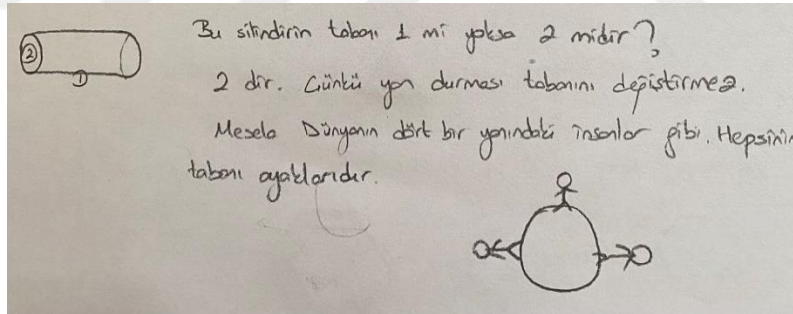 Bu silindirin tabanı 1 mi yoksa 2 midir?
2 dir. Çünkü yan durması tabanını değiştirmez.
Mesela Dünyanın dört bir yanındaki insanlar gibi. Hepsinin
tabanı ayaklarıdır.
2
1